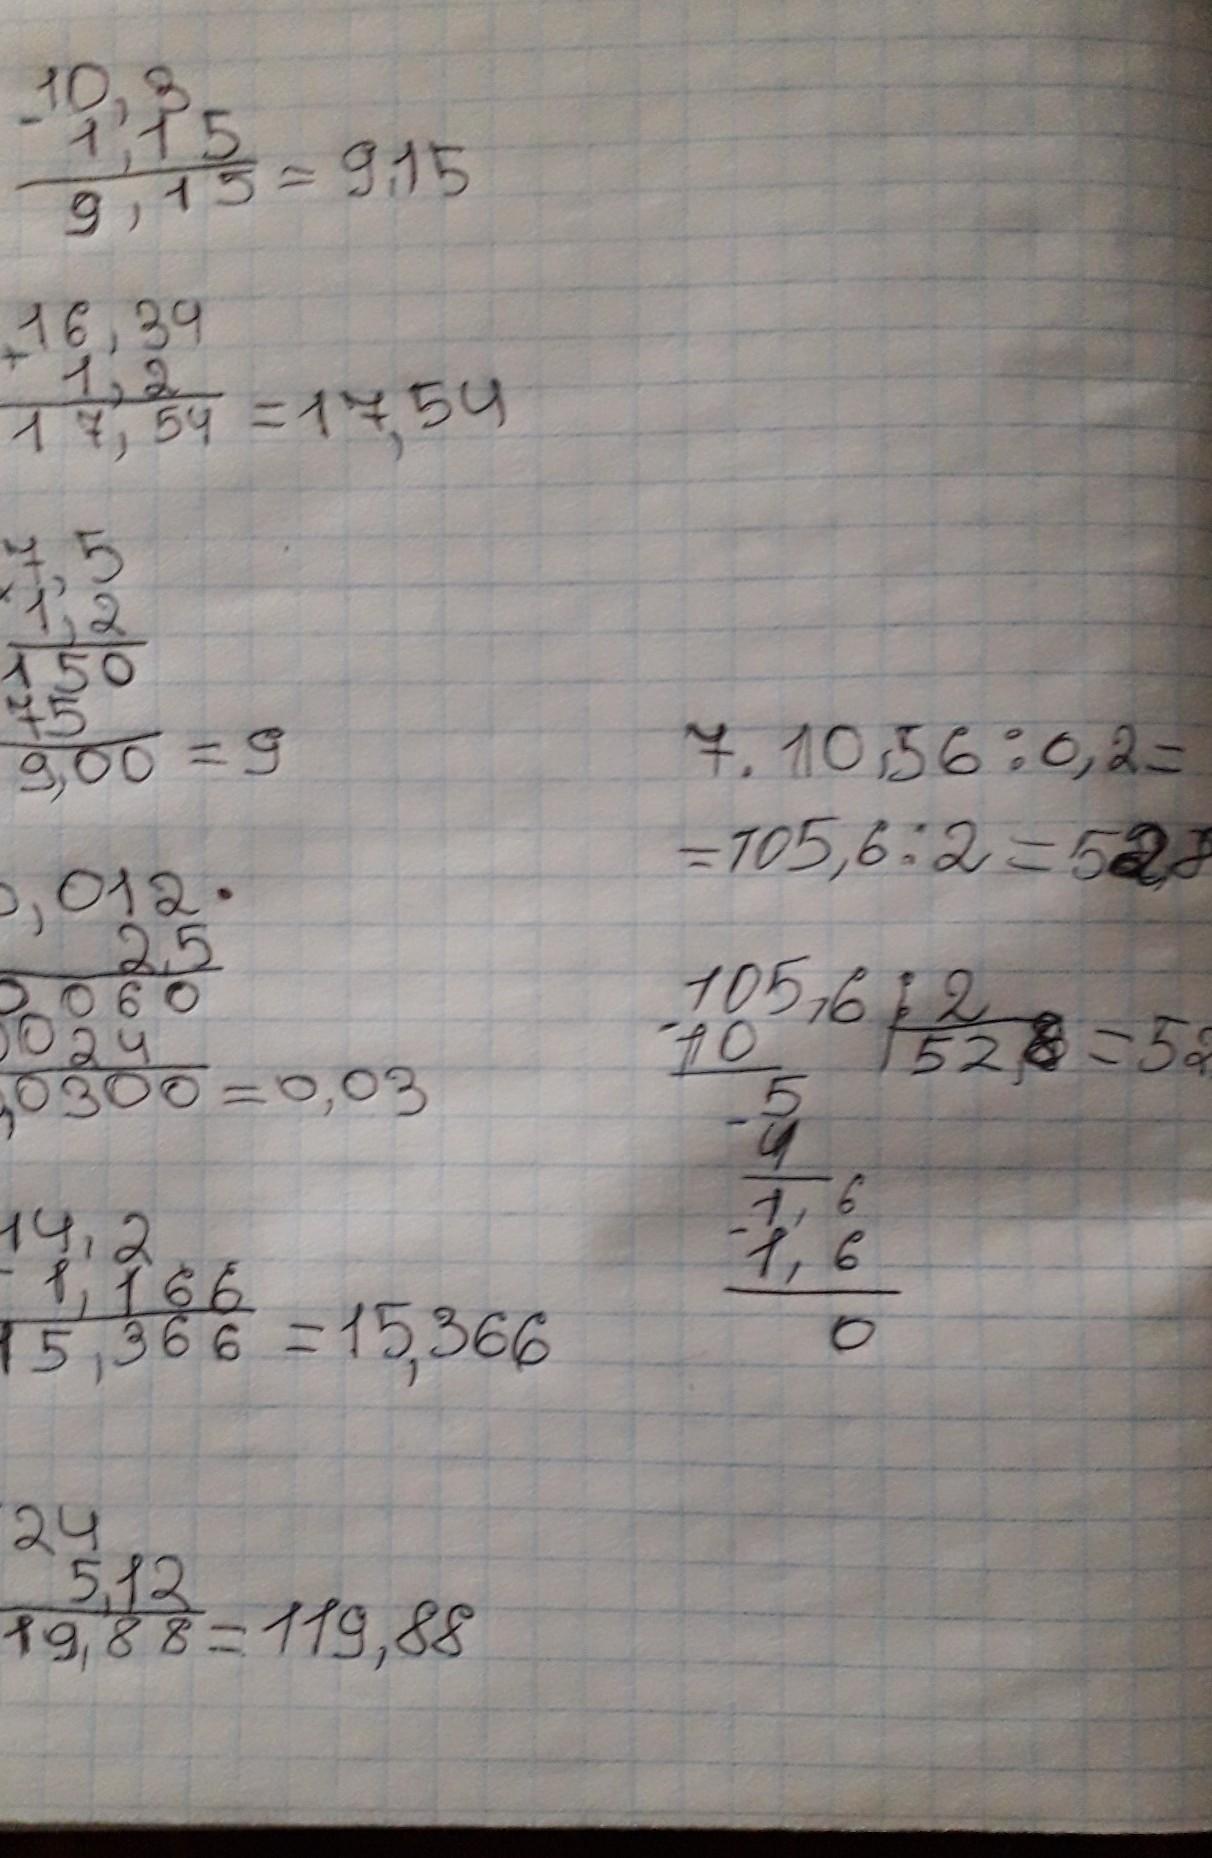 -10,3
1,15
9,15 = 9,15
+16,34
1,2
17,54 = 17,54
×7,5
1,2
150
75
9,00 = 9
0,012 ·
2,5
0060
0024
,0300 = 0,03
14,2
1,166
15,366 = 15,366
24
5,12
19,88 = 119,88
7. 10,56 : 0,2 =
= 105,6 : 2 = 52,8
105,6 : 2
-10 52,8 = 52
-5
4
1,6
-1,6
0